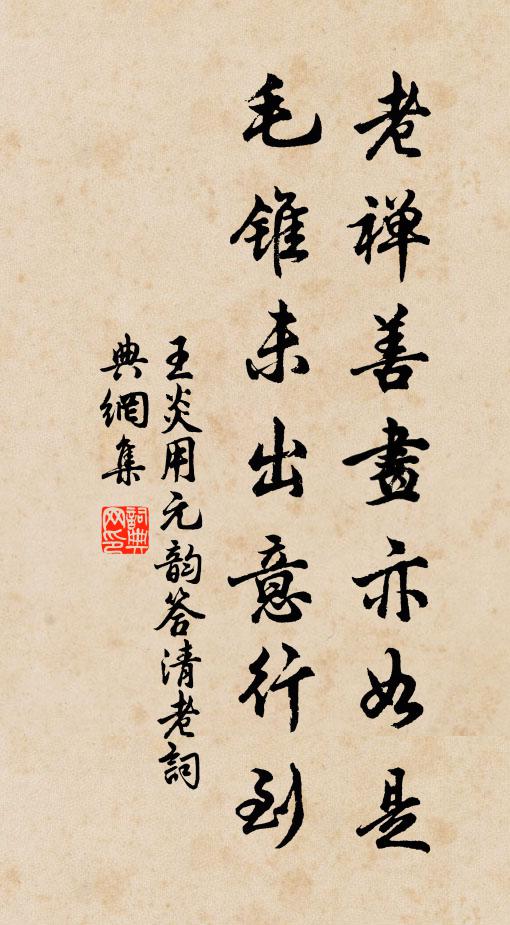 老禅善畫亦如是
毛錐未出意行到
王炎用元韵答清老詞
典網集
詞典網印